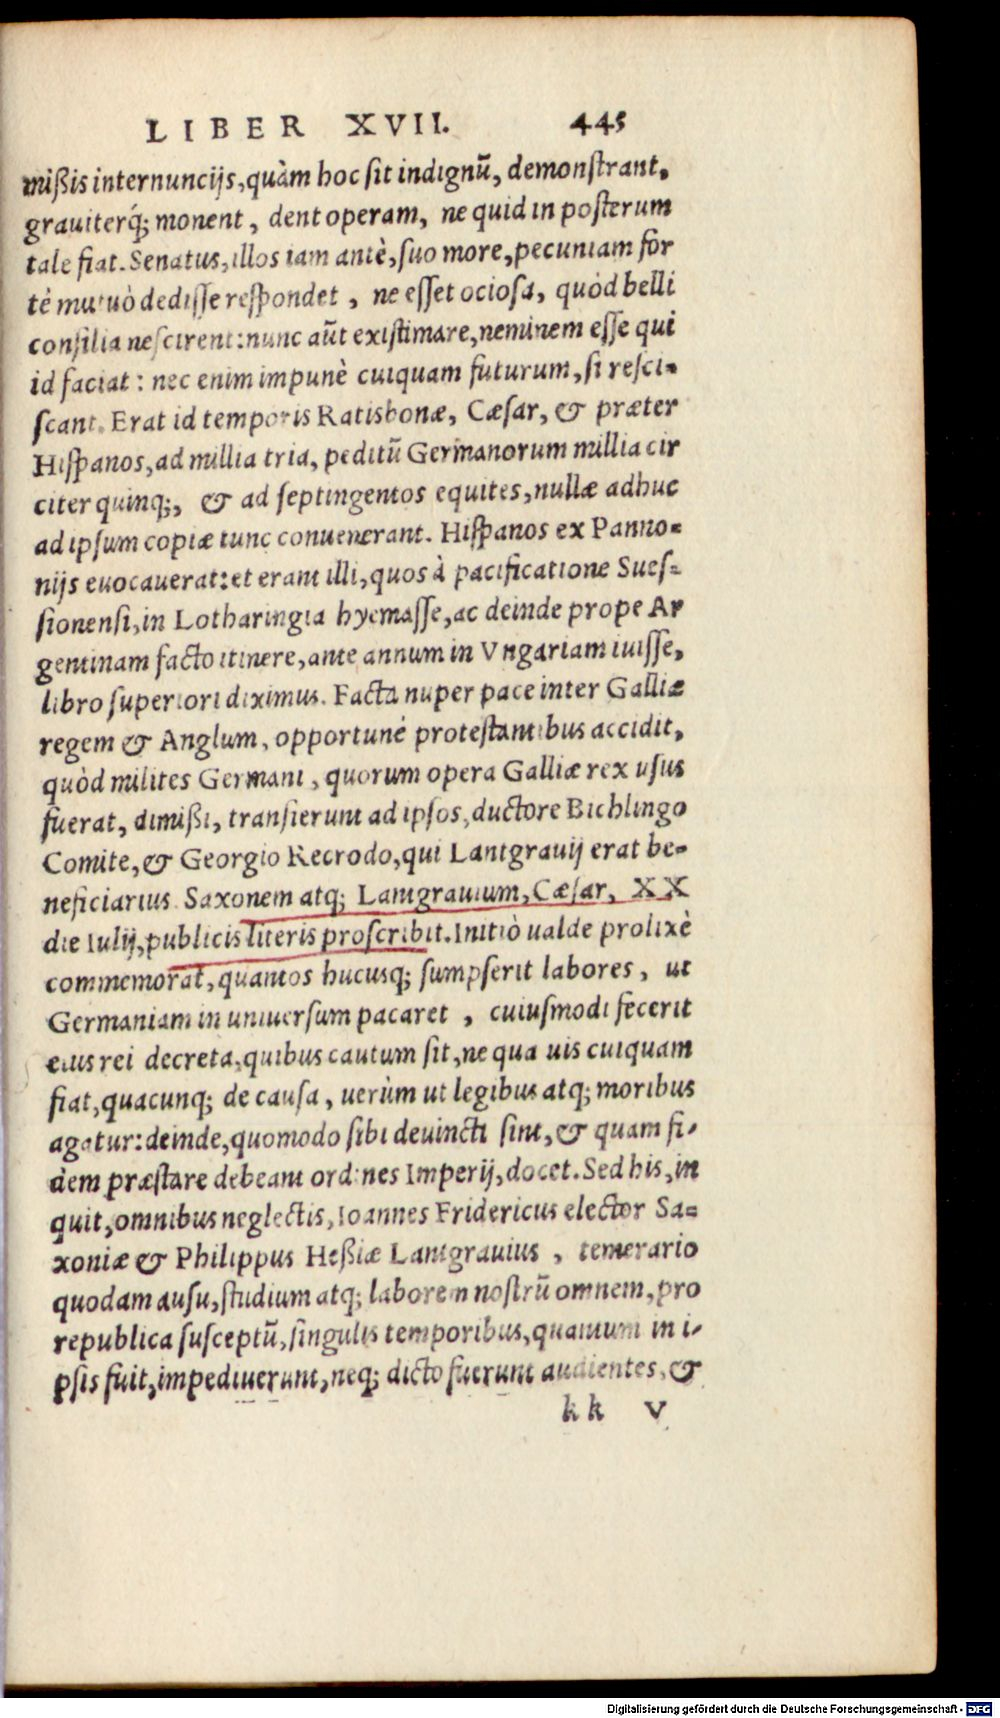 LIBER XVII. 445
mißis internuncijs, quàm hoc sit indignũ, demonstrant,
grauiterq́; monent, dent operam, ne quid in posterum
tale fiat. Senatus, illos iam antè, suo more, pecuniam for
tè mutuò dedisse respondet, ne esset ociosa, quòd belli
consilia nescirent: nunc aũt existimare, neminem esse qui
id faciat: nec enim impunè cuiquam futurum, si resci-
scant. Erat id temporis Ratisbonæ, Cæsar, & præter
Hispanos, ad millia tria, peditũ Germanorum millia cir
citer quinq;, & ad septingentos equites, nullæ adhuc
ad ipsum copiæ tunc conuenerant. Hispanos ex Panno-
nijs euocauerat: et erant illi, quos à pacificatione Sues-
sionensi, in Lotharingia hyemasse, ac deinde prope Ar
gentinam facto itinere, ante annum in Vngariam iuisse,
libro superiori diximus. Facta nuper pace inter Galliæ
regem & Anglum, opportunè protestantibus accidit,
quòd milites Germani, quorum opera Galliæ rex usus
fuerat, dimißi, transierunt ad ipsos, ductore Bichlingo
Comite, & Georgio Recrodo, qui Lantgrauij erat be-
neficiarius Saxonem atq; Lantgrauium, Cæsar, XX
die Iulij, publicis literis proscribit. Initiò ualde prolixè
commemorat, quantos hucusq; sumpserit labores, ut
Germaniam in uniuersum pacaret, cuiusmodi fecerit
eius rei decreta, quibus cautum sit, ne qua uis cuiquam
fiat, quacunq; de causa, uerùm ut legibus atq; moribus
agatur: deinde, quomodo sibi deuincti sint, & quam fi-
dem præstare debeant ordines Imperij, docet. Sed his, in
quit, omnibus neglectis, Ioannes Fridericus elector Sa-
xoniæ & Philippus Heßiæ Lantgrauius, temerario
quodam ausu, studium atq; laborem nostrũ omnem, pro
republica susceptũ, singulis temporibus, quantum in i-
psis fuit, impediuerunt, neq; dicto fuerunt audientes, &
kk v
Digitalisierung gefördert durch die Deutsche Forschungsgemeinschaft - DFG